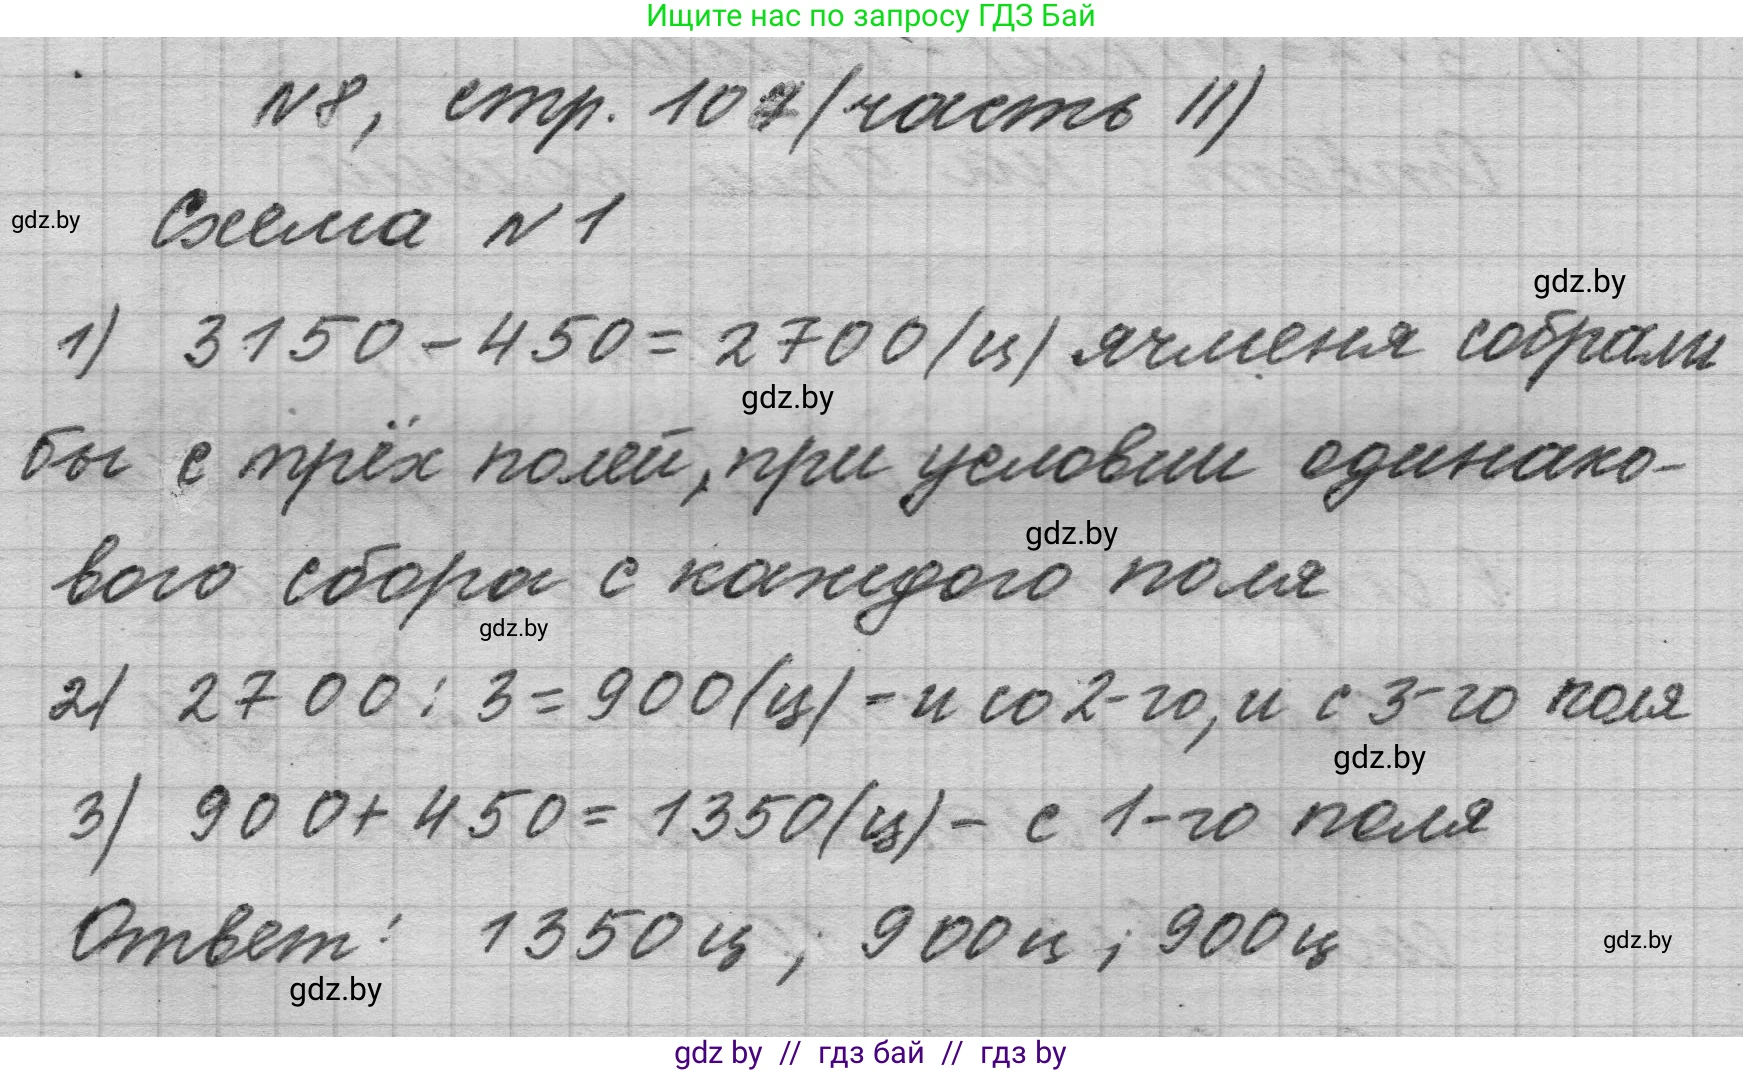 Ищите нас по запросу ГДЗ Бай
N8, стр. 107 (часть II)
gdz.by
Схема N1
gdz.by
1) 3150-450=2700(ц) ячменя собрали
gdz.by
бы с трёх полей, при условии одинако-
gdz.by
вого сбора с каждого поля
gdz.by
2) 2700:3=900(ц)-и со 2-го, и с 3-го поля
gdz.by
3) 900+450=1350(ц)- с 1-го поля
Ответ: 1350ц; 900ц; 900ц
gdz.by
gdz.by
gdz by // гдз бай // гдз by